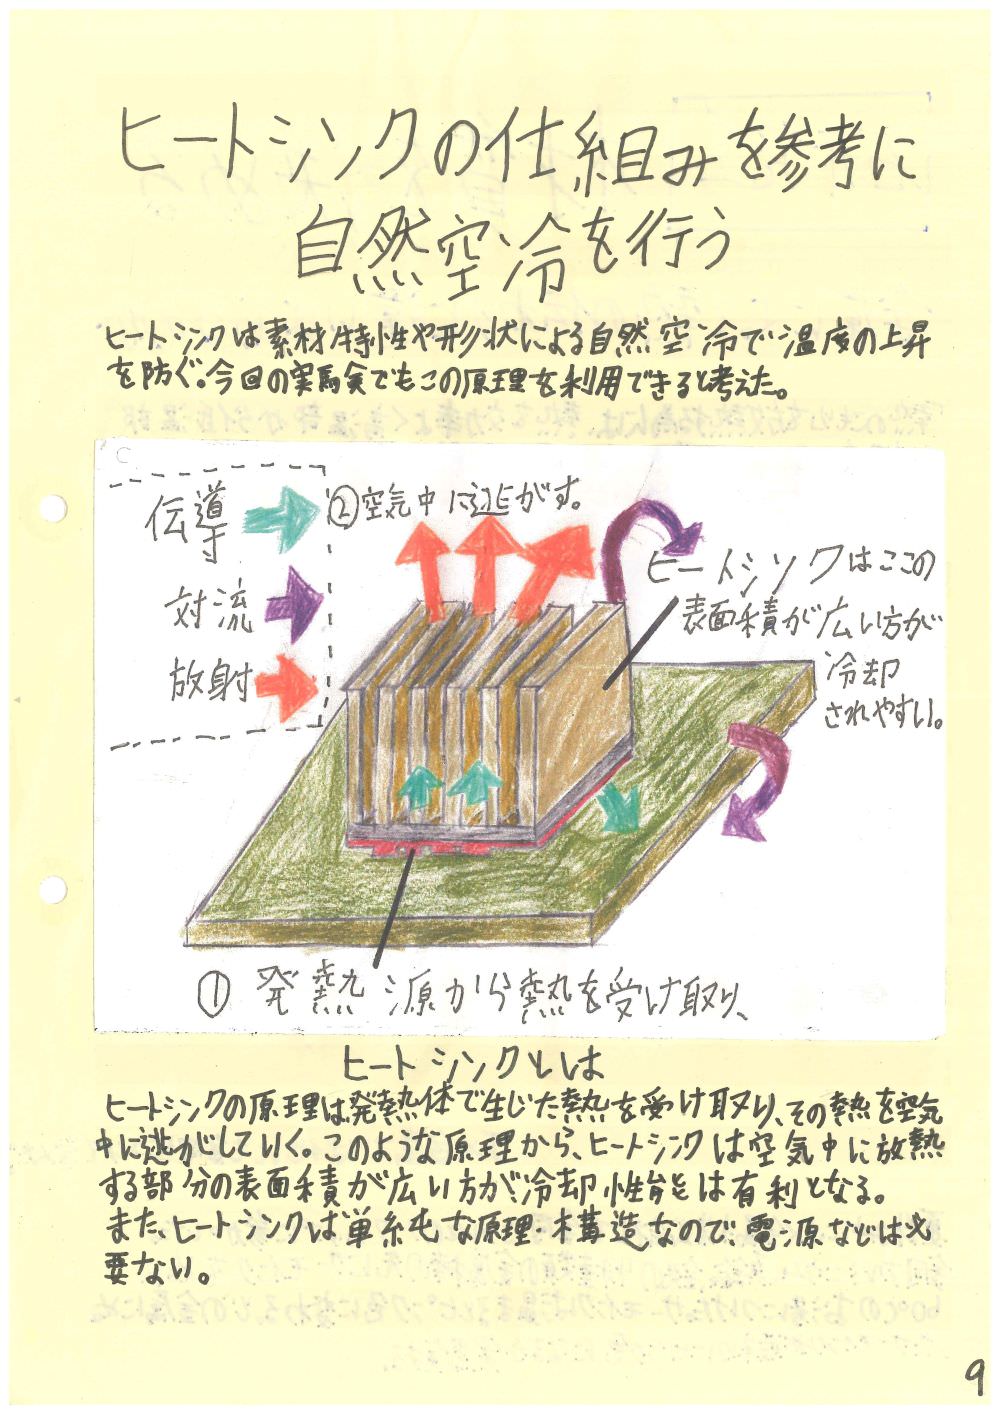 ヒートシンクの仕組みを参考に
自然空冷を行う
ヒートシンクは素材特性や形状による自然空冷で温度の上昇
を防ぐ。今回の実験でもこの原理を利用できると考えた。
伝導
対流
放射
②空気中に逃がす。
ヒートシンクはここの
表面積が広い方が
冷却
されやすい。
①発熱源から熱を受け取り、
ヒートシンクとは
ヒートシンクの原理は発熱体で生じた熱を受け取り、その熱を空気
中に逃がしていく。このような原理から、ヒートシンクは空気中に放熱
する部分の表面積が広い方が冷却性能は有利となる。
また、ヒートシンクは単純な原理・構造なので、電源などは必
要ない。
9